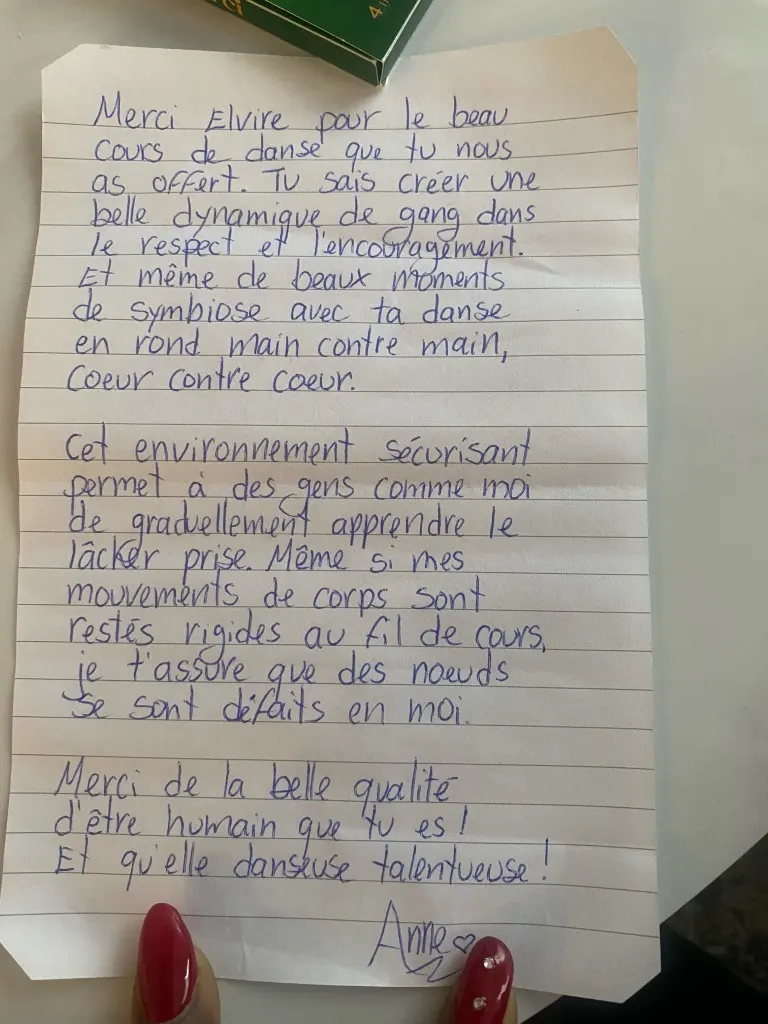 Merci Elvire pour le beau
cours de danse que tu nous
as offert. Tu sais créer une
belle dynamique de gang dans
le respect et l'encouragement.
Et même de beaux moments
de symbiose avec ta danse
en rond main contre main,
coeur contre coeur.
Cet environnement sécurisant
permet à des gens comme moi
de graduellement apprendre le
lâcker prise. Même si mes
mouvements de corps sont
restés rigides au fil de cours,
je t'assure que des noeuds
se sont défaits en moi.
Merci de la belle qualité
d'être humain que tu es !
Et qu'elle danseuse talentueuse !
Anne